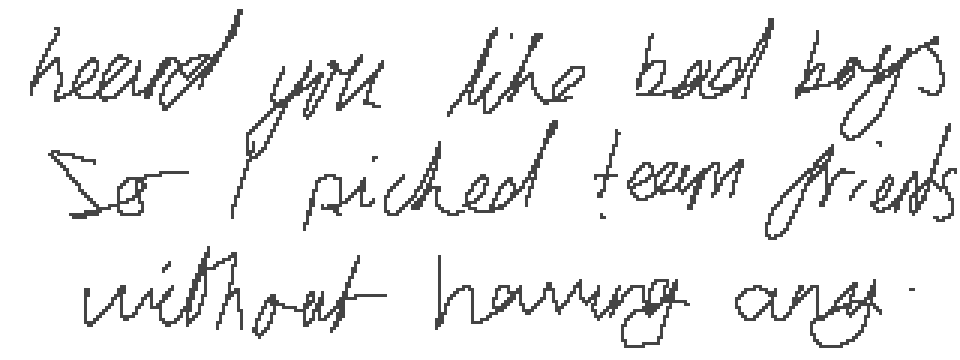 heard you like bad boys
So I picked team friends
without having any.